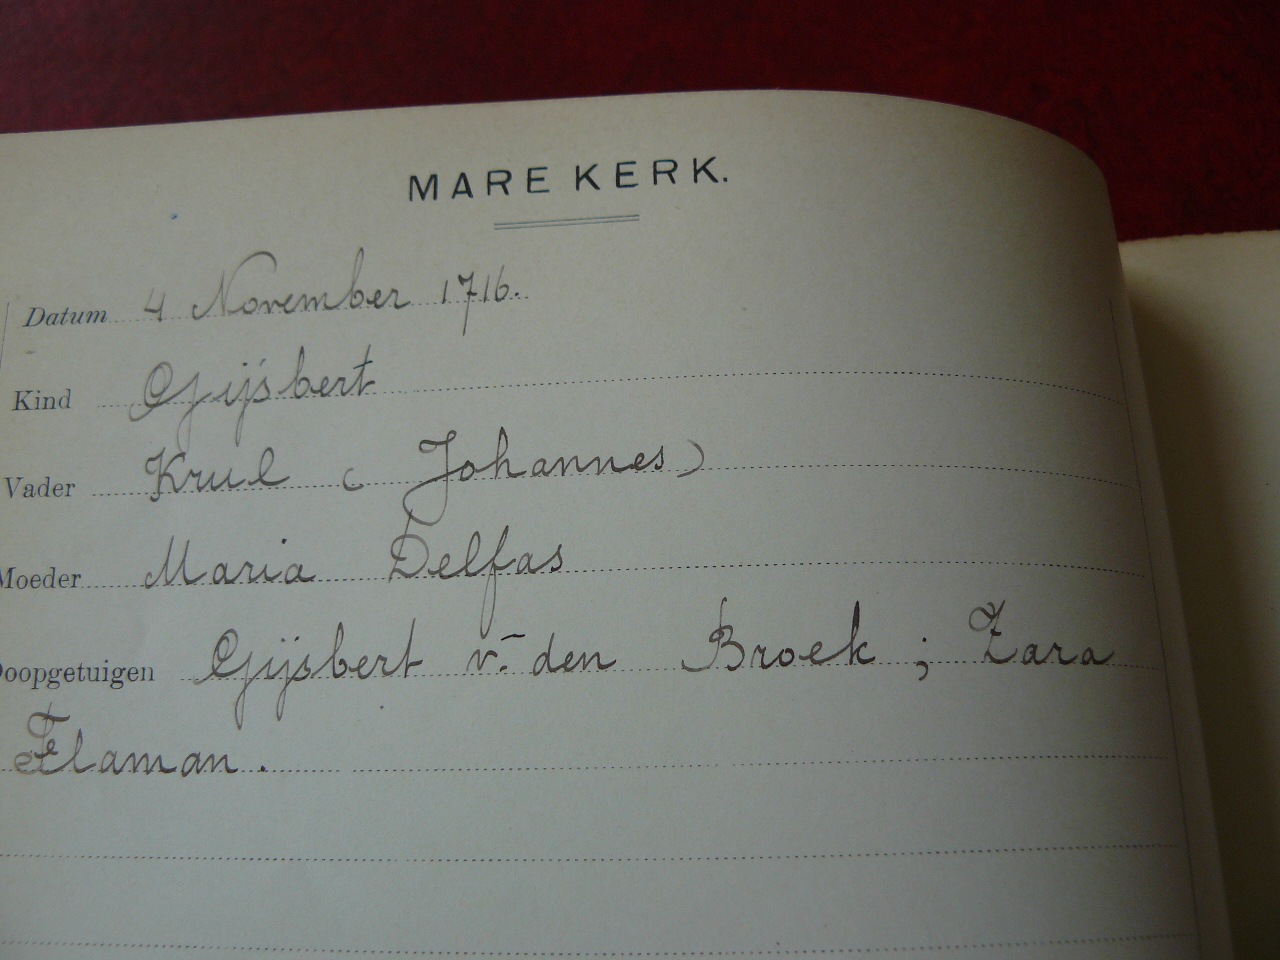 MARE KERK.
Datum 4 November 1716.
Kind Gijsbert
Vader Krul (Johannes)
Moeder Maria Delfas
Doopgetuigen Gijsbert v. den Broek ; Zara
Flaman.